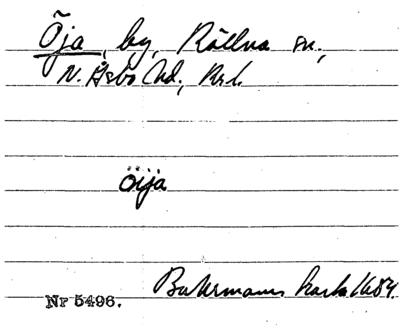 Öja, by, Rällna sn,
N. Åsbo hd, Krl.
öija
Buhrmanns karta 1684.
Nr 5496.